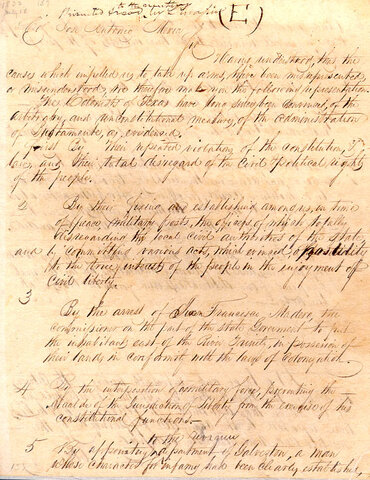 (E)
Col. Jose Antonio Mexia
Having understood, that the
causes which impelled us to take up arms, have been misrepresented
or misunderstood, we therefore make you the following representation.
The Colonists of Texas have long since been convinced, of the
arbitrary, and unconstitutional measures, of the administration
of Bustamente, as evidenced.
1 First By their repeated violation of the constitution, &
laws, and their total disregard of the Civil & Political rights
of the people.
2 By their fixing and establishing among us, in time
of peace, Military posts, the officers of which totally
disregarding the local civil authorities of the State
and by committing various acts, which evinced, opposition
to the true interest of the people in the enjoyment of
Civil liberty.
3
By the arrest of Juan Francisco, Madero, the
commissioner on the part of the State Government to put
the inhabitants east of the River Trinity, in possession of
their lands in conformity with the laws of Colonization.
4 By the interposition of a military force, preventing the
Alcalde of the Jurisdiction of Liberty from the exercise of his
constitutional functions.
to the revenue
5 By appointing department of Galveston, a man
whose character for infamy had been clearly established,